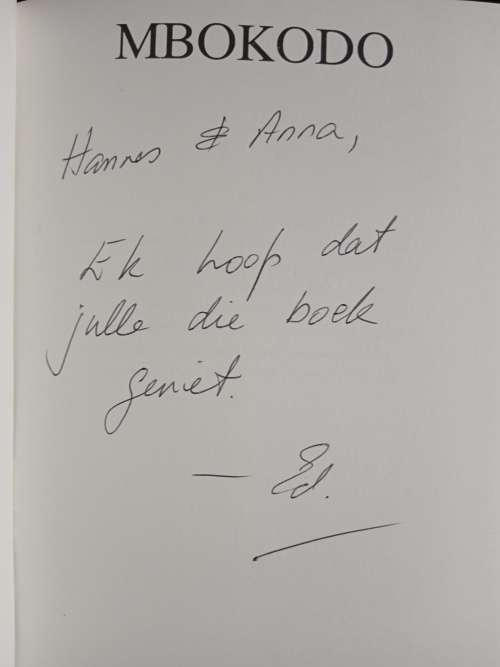 MBOKODO
Hannes & Anna,
Ek hoop dat
julle die boek
geniet.
— Ed.